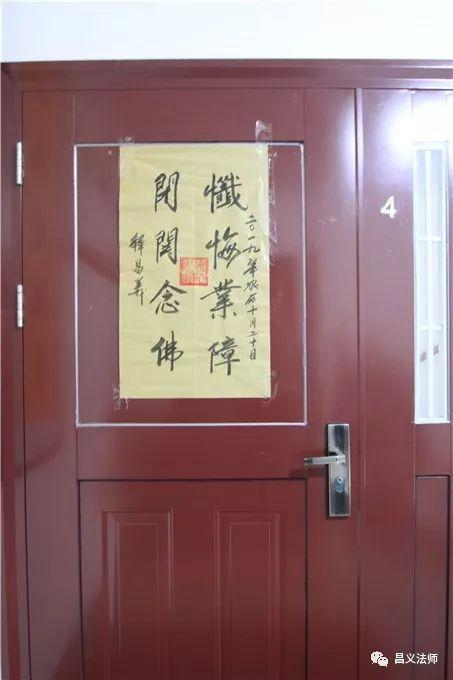 二〇一九年农历十月二十日
懺悔業障
閉関念佛
釋昌義
4
昌义法师